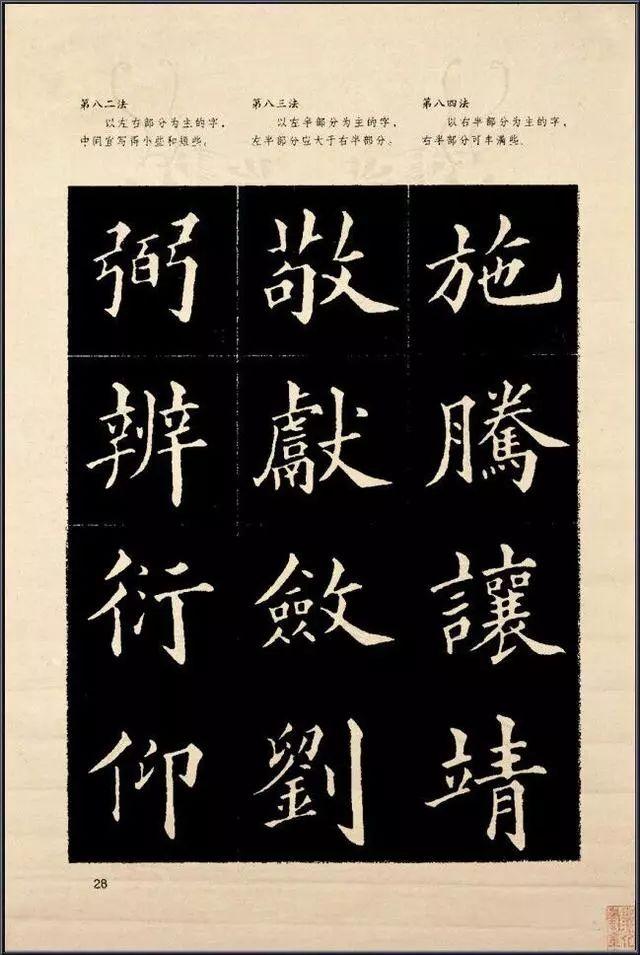 第八二法
以左右部分为主的字，
中间宜写得小些和短些。
第八三法
以左半部分为主的字，
左半部分应大于右半部分。
第八四法
以右半部分为主的字，
右半部分可丰满些。
弼
辨
衍
仰
敬
獻
斂
劉
施
騰
讓
靖
28